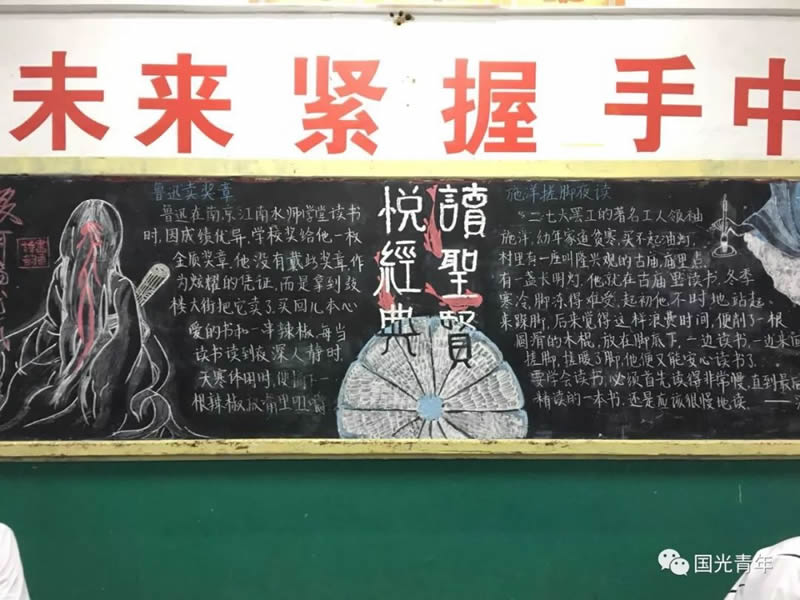 未来 紧握 手中
鲁迅卖奖章
鲁迅在南京江南水师学堂读书
时,因成绩优异,学校奖给他一枚
金质奖章,他没有戴此奖章,作
为炫耀的凭证,而是拿到鼓
楼大街把它卖了,买回几本心
爱的书和一串辣椒,每当
读书读到夜深人静时,
天寒体困时,
根辣椒
讀聖賢
悦經典
施洋搓脚夜读
“二七大罢工的著名工人领袖
施洋,幼年家道贫寒,买不起油灯,
村里有一座叫隆兴观的古庙,庙里点
有一盏长明灯,他就在古庙里读书,冬季
寒冷,脚冻得难受,起初他不时地站起
来跺脚,后来觉得这样浪费时间,便削了一根
圆滑的木棍,放在脚底下,一边读书,一边来回
搓脚,搓暖了脚,他便又能安心读书了。
要学会读书,必须首先读得非常慢,直到最后
精读的一本书,还是应该很慢地读。——
国光青年